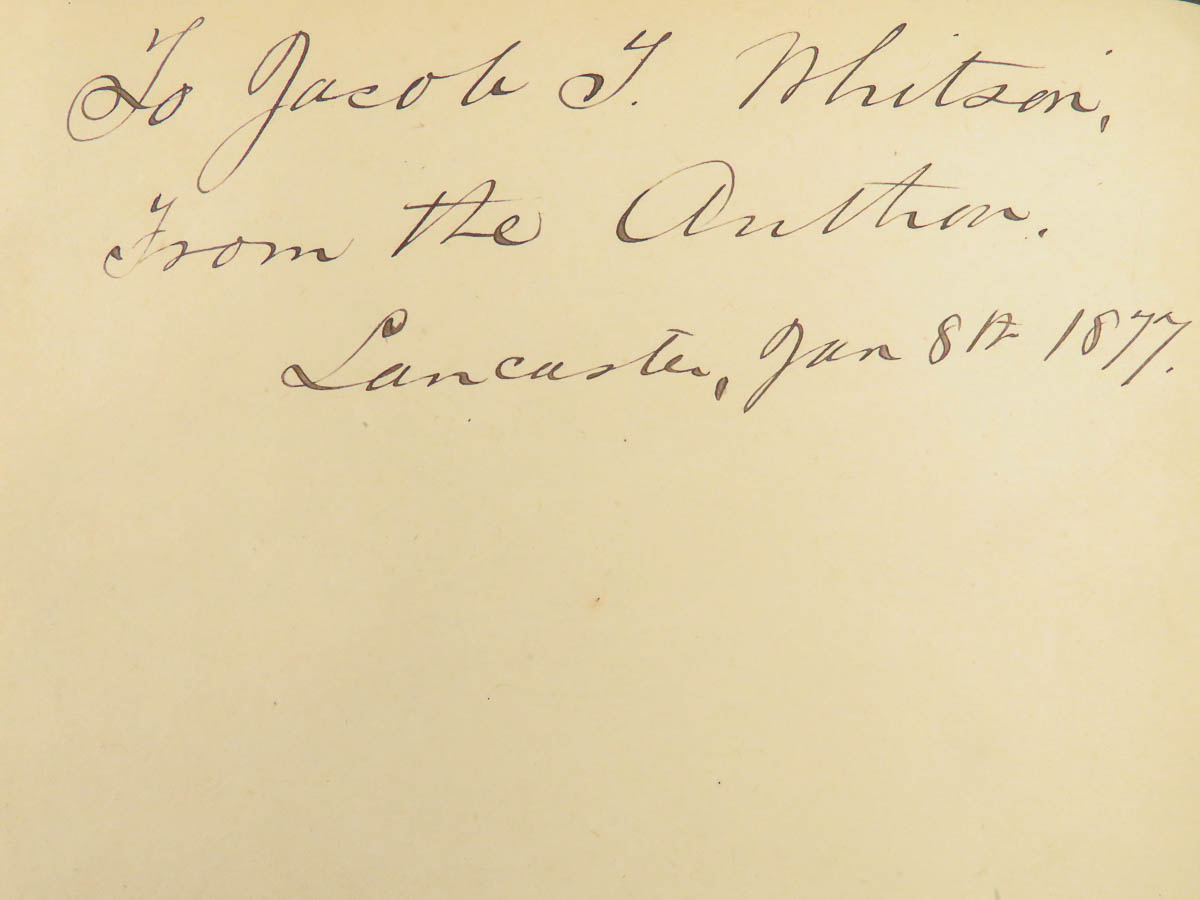 To Jacob T. Whitson,
From the Author.
Lancaster, Jan 8th 1877.